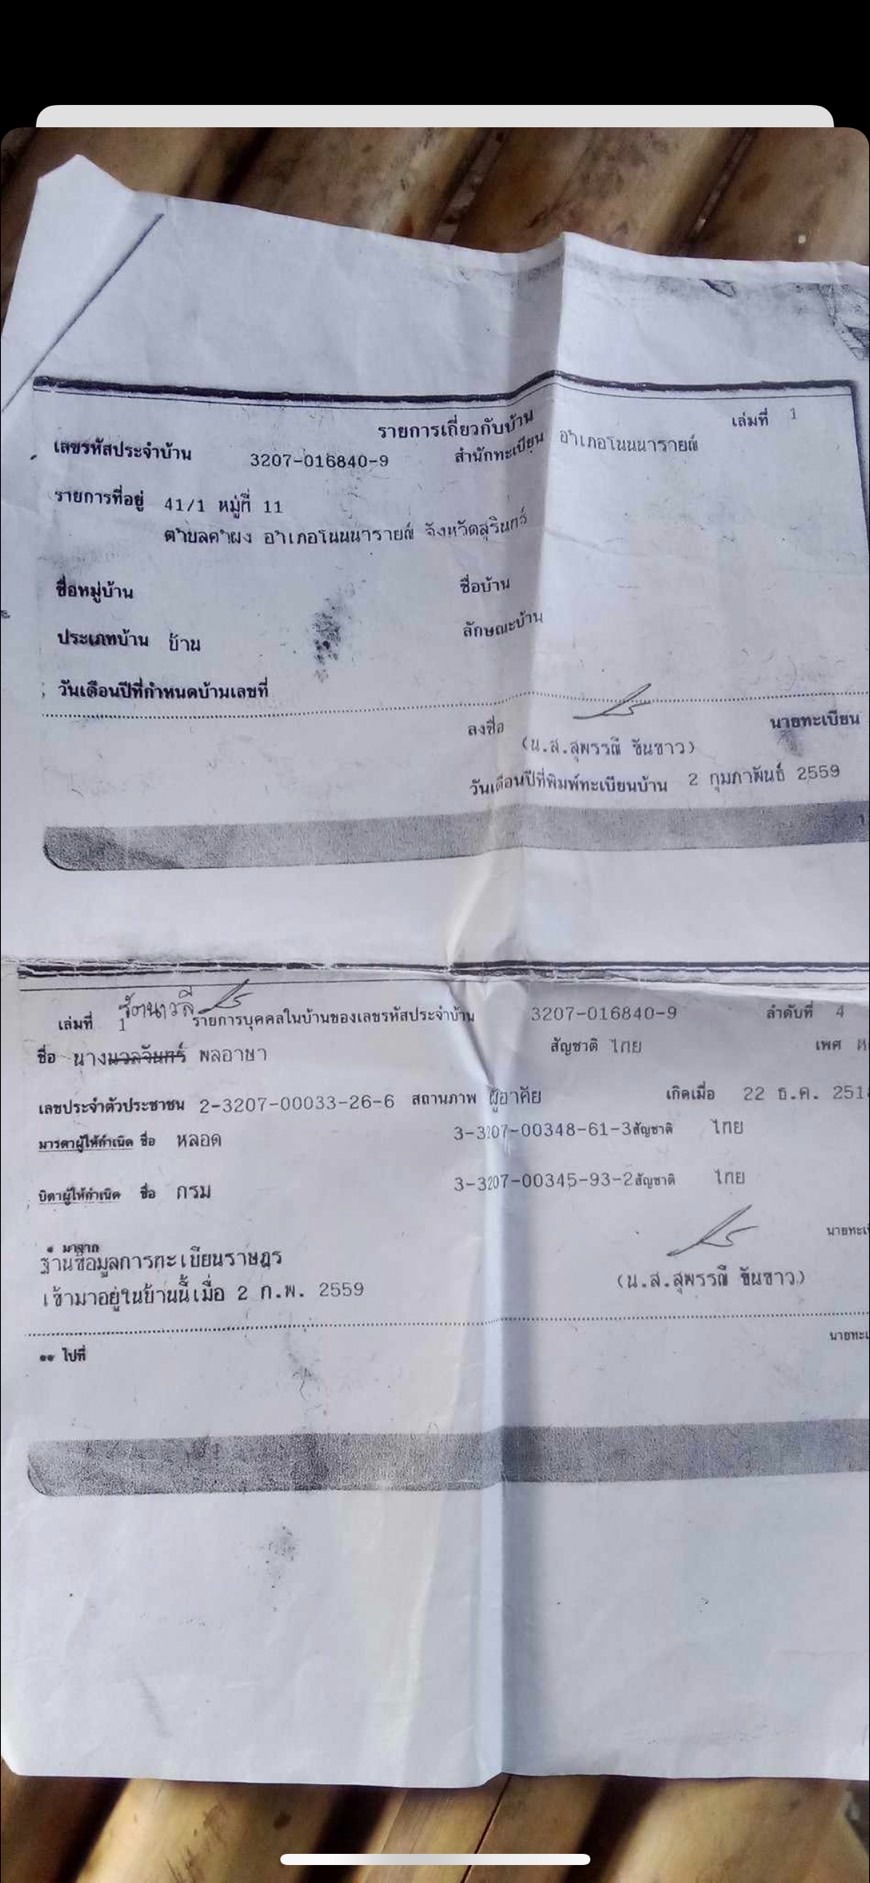 รายการเกี่ยวกับบ้าน เล่มที่ 1
เลขรหัสประจำบ้าน 3207-016840-9 สำนักทะเบียน อำเภอโนนนารายณ์
รายการที่อยู่ 41/1 หมู่ที่ 11
ตำบลคำผง อำเภอโนนนารายณ์ จังหวัดสุรินทร์
ชื่อหมู่บ้าน ชื่อบ้าน
ประเภทบ้าน บ้าน ลักษณะบ้าน
วันเดือนปีที่กำหนดบ้านเลขที่
ลงชื่อ นายทะเบียน
(น.ส.สุพรรณี ขันขาว)
วันเดือนปีที่พิมพ์ทะเบียนบ้าน 2 กุมภาพันธ์ 2559
1
รัตนาวลี
เล่มที่ 1 รายการบุคคลในบ้านของเลขรหัสประจำบ้าน 3207-016840-9 ลำดับที่ 4
ชื่อ นางนวลจันทร์ พลอาษา สัญชาติ ไทย เพศ
เลขประจำตัวประชาชน 2-3207-00033-26-6 สถานภาพ ผู้อาศัย เกิดเมื่อ 22 ธ.ค. 251
มารดาผู้ให้กำเนิด ชื่อ หลอด 3-3207-00348-61-3 สัญชาติ ไทย
บิดาผู้ให้กำเนิด ชื่อ กรม 3-3207-00345-93-2 สัญชาติ ไทย
* มาจาก นายทะเ
ฐานข้อมูลการทะเบียนราษฎร
เข้ามาอยู่ในบ้านนี้เมื่อ 2 ก.พ. 2559 (น.ส.สุพรรณี ขันขาว)
** ไปที่ นายทะเ